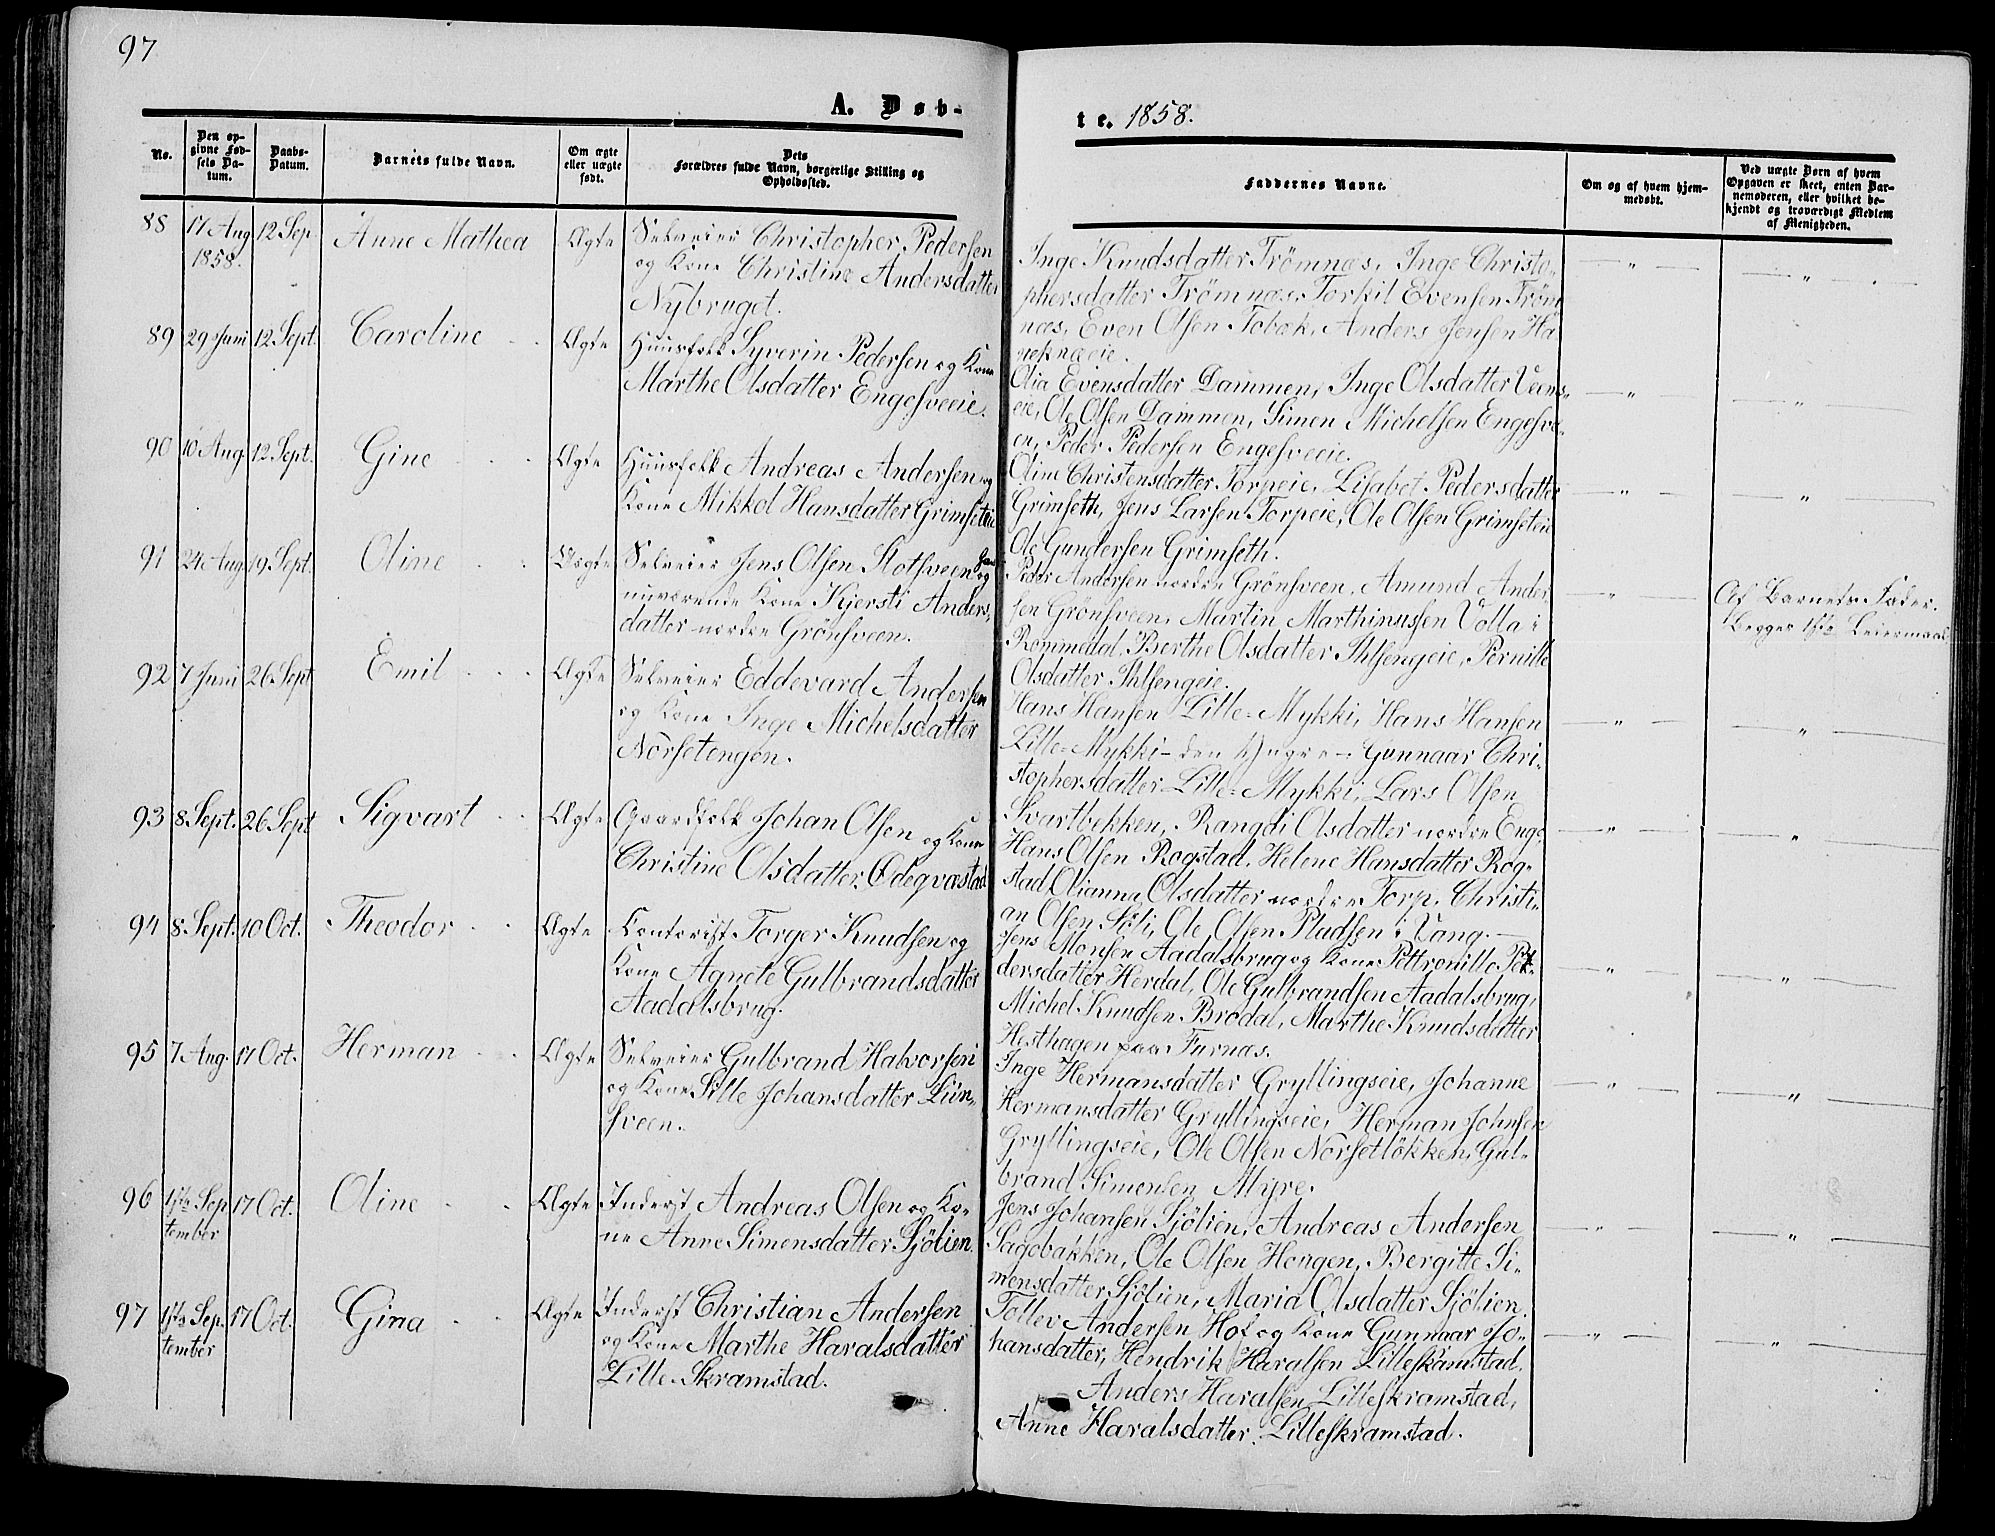 97
A. Døb-
te. 1858.
No.
Den op-
givne Fød-
sels Da-
tum.
Daabs-
Datum.
Barnets fulde Navn.
Om ægte
eller uægte
født.
Dets
Forældres fulde Navn, borgerlige Stilling og
Opholdssted.
Faddernes Navne.
Om og af hvem hjem-
medøbt.
Ved uægte Børn af hvem
Opgaven er skeet, enten Bar-
nemoderen, eller hvilket be-
kjendt og troværdigt Medlem
af Menigheden.
88 17 Aug 1858. 12 Sep. Anne Mathea Ægte
Selveier Christopher Pedersen
og Kone Christine Andersdatter
Nybruget.
Inge Knudsdatter Trömnæs, Inge Christo-
phersdatter Trömnæs, Torkil Evensen Tröm
næs, Even Olsen Tobæk, Anders Jensen Ha
neknæeie.
89 29 Juni 12 Sept. Caroline Ægte
Huusfolk Syverin Pedersen og Kone
Marthe Olsdatter Engesveeie.
Olia Evensdatter Dammen, Inge Olsdatter Veens-
eie, Ole Olsen Dammen, Simen Michelsen Engesve-
en, Peder Pedersen Engesveeie.
90 10 Aug. 12 Sept. Gine Ægte
Huusfolk Andreas Andersen og
Kone Mikkel Hansdatter Grimseteie
Oline Christensdatter Torpeie, Lisabet Pedersdatter
Grimseth, Jens Larsen Torpeie, Ole Olsen Grimseteie
Ole Gundersen Grimseth.
91 24 Aug. 19 Sept. Oline Uægte
Selveier Jens Olsen Slotsveen og
nuværende Kone Kjersti Anders-
datter nordre Grönsveen.
Peder Andersen nordre Grönsveen, Amund Ander-
sen Grönsveen, Martin Marthinussen Volla i
Rommedal, Berthe Olsdatter Ihlsengeie, Pernille
Olsdatter Ihlsengeie.
Af Barnets Fader.
Begges 1ste Leiermaal
92 7 Juni 26 Sept Emil Ægte
Selveier Eddevard Andersen
og Kone Inge Michelsdatter
Norsetengen.
Hans Hansen Lille-Mykki, Hans Hansen
Lille-Mykki - den Yngre - Gunnaar Chri-
stophersdatter Lille-Mykki, Lars Olsen
Svartbekken, Rangdi Olsdatter nordre Enge
93 8 Sept. 26 Sept Sigvart Ægte
Gaardfolk Johan Olsen og Kone
Christine Olsdatter Ødeqvæstad
Hans Olsen Rogstad, Helene Hansdatter Rog-
stad, Olianna Olsdatter nordre Torp, Christi-
an Olsen Söli, Ole Olsen Pladsen i Vang.
94 8 Sept. 10 Oct. Theodor Ægte
Contorist Torger Knudsen og
Kone Agnete Gulbrandsdatter
Aadalsbrug.
Jens Monsen Aadalsbrug og Kone Pettronille Pe-
dersdatter Herdal, Ole Gulbrandsen Aadalsbrug,
Michel Knudsen Brodal, Marthe Knudsdatter
Hesthagen paa Furnæs.
95 7 Aug. 17 Oct. Herman Ægte
Selveier Gulbrand Halvorsen
og Kone Sille Johansdatter Lün-
sveen.
Inge Hermansdatter Gryllingseie, Johanne
Hermansdatter Gryllingseie, Herman Johnsen
Gryllingseie, Ole Olsen Norsetlökken, Gul-
brand Simensen Myre.
96 1ste Sep
tember 17 Oct. Oline Ægte
Inderst Andreas Olsen og Ko-
ne Anne Simensdatter Sjölien.
Jens Johansen Sjölien, Andreas Andersen
Sagebakken, Ole Olsen Hougen, Bergitte Si-
mensdatter Sjölien, Maria Olsdatter Sjölien.
97 1ste Sep.
tember 17 Oct. Gina Ægte
Inderst Christian Andersen
og Kone Marthe Haralsdatter
Lille-Skramstad.
Tollev Andersen Hof og Kone Gunnaar Jo-
hansdatter, Hendrik Haralsen Lilleskramstad,
Anders Haralsen Lilleskramstad,
Anne Haralsdatter Lilleskramstad.